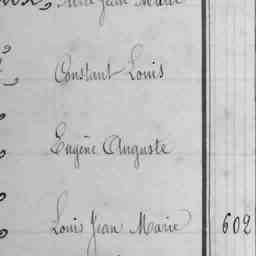 Jean Marie
Constant Louis
Eugène Auguste
Louis Jean Marie 602